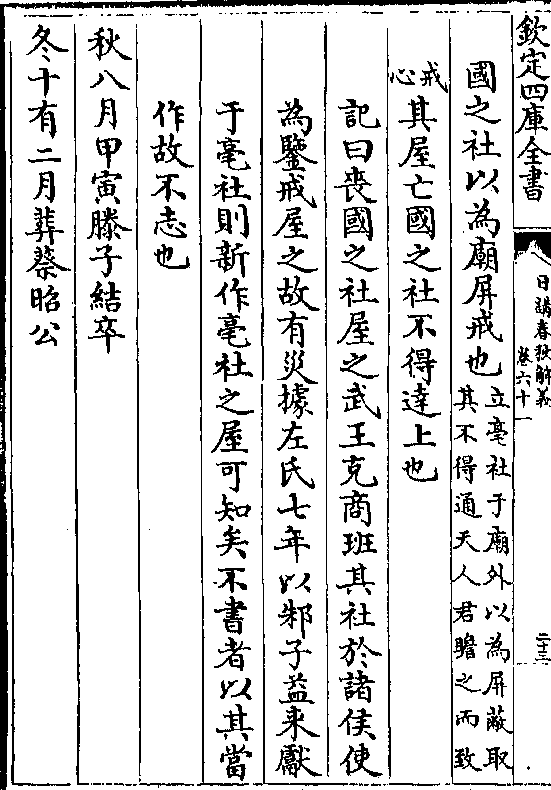 欽定四庫全書
日講春秋解義
卷六十一
二十三
國之社以為廟屏戒也立亳社于廟外以為屏蔽取
其不得通天人君瞻之而致
戒心其屋亡國之社不得達上也
記曰喪國之社屋之武王克商班其社於諸侯使
為鑒戒屋之故有災據左氏七年以邾子益来獻
于亳社則新作亳社之屋可知矣不書者以其當
作故不志也
秋八月甲寅滕子結卒
冬十有二月葬蔡昭公